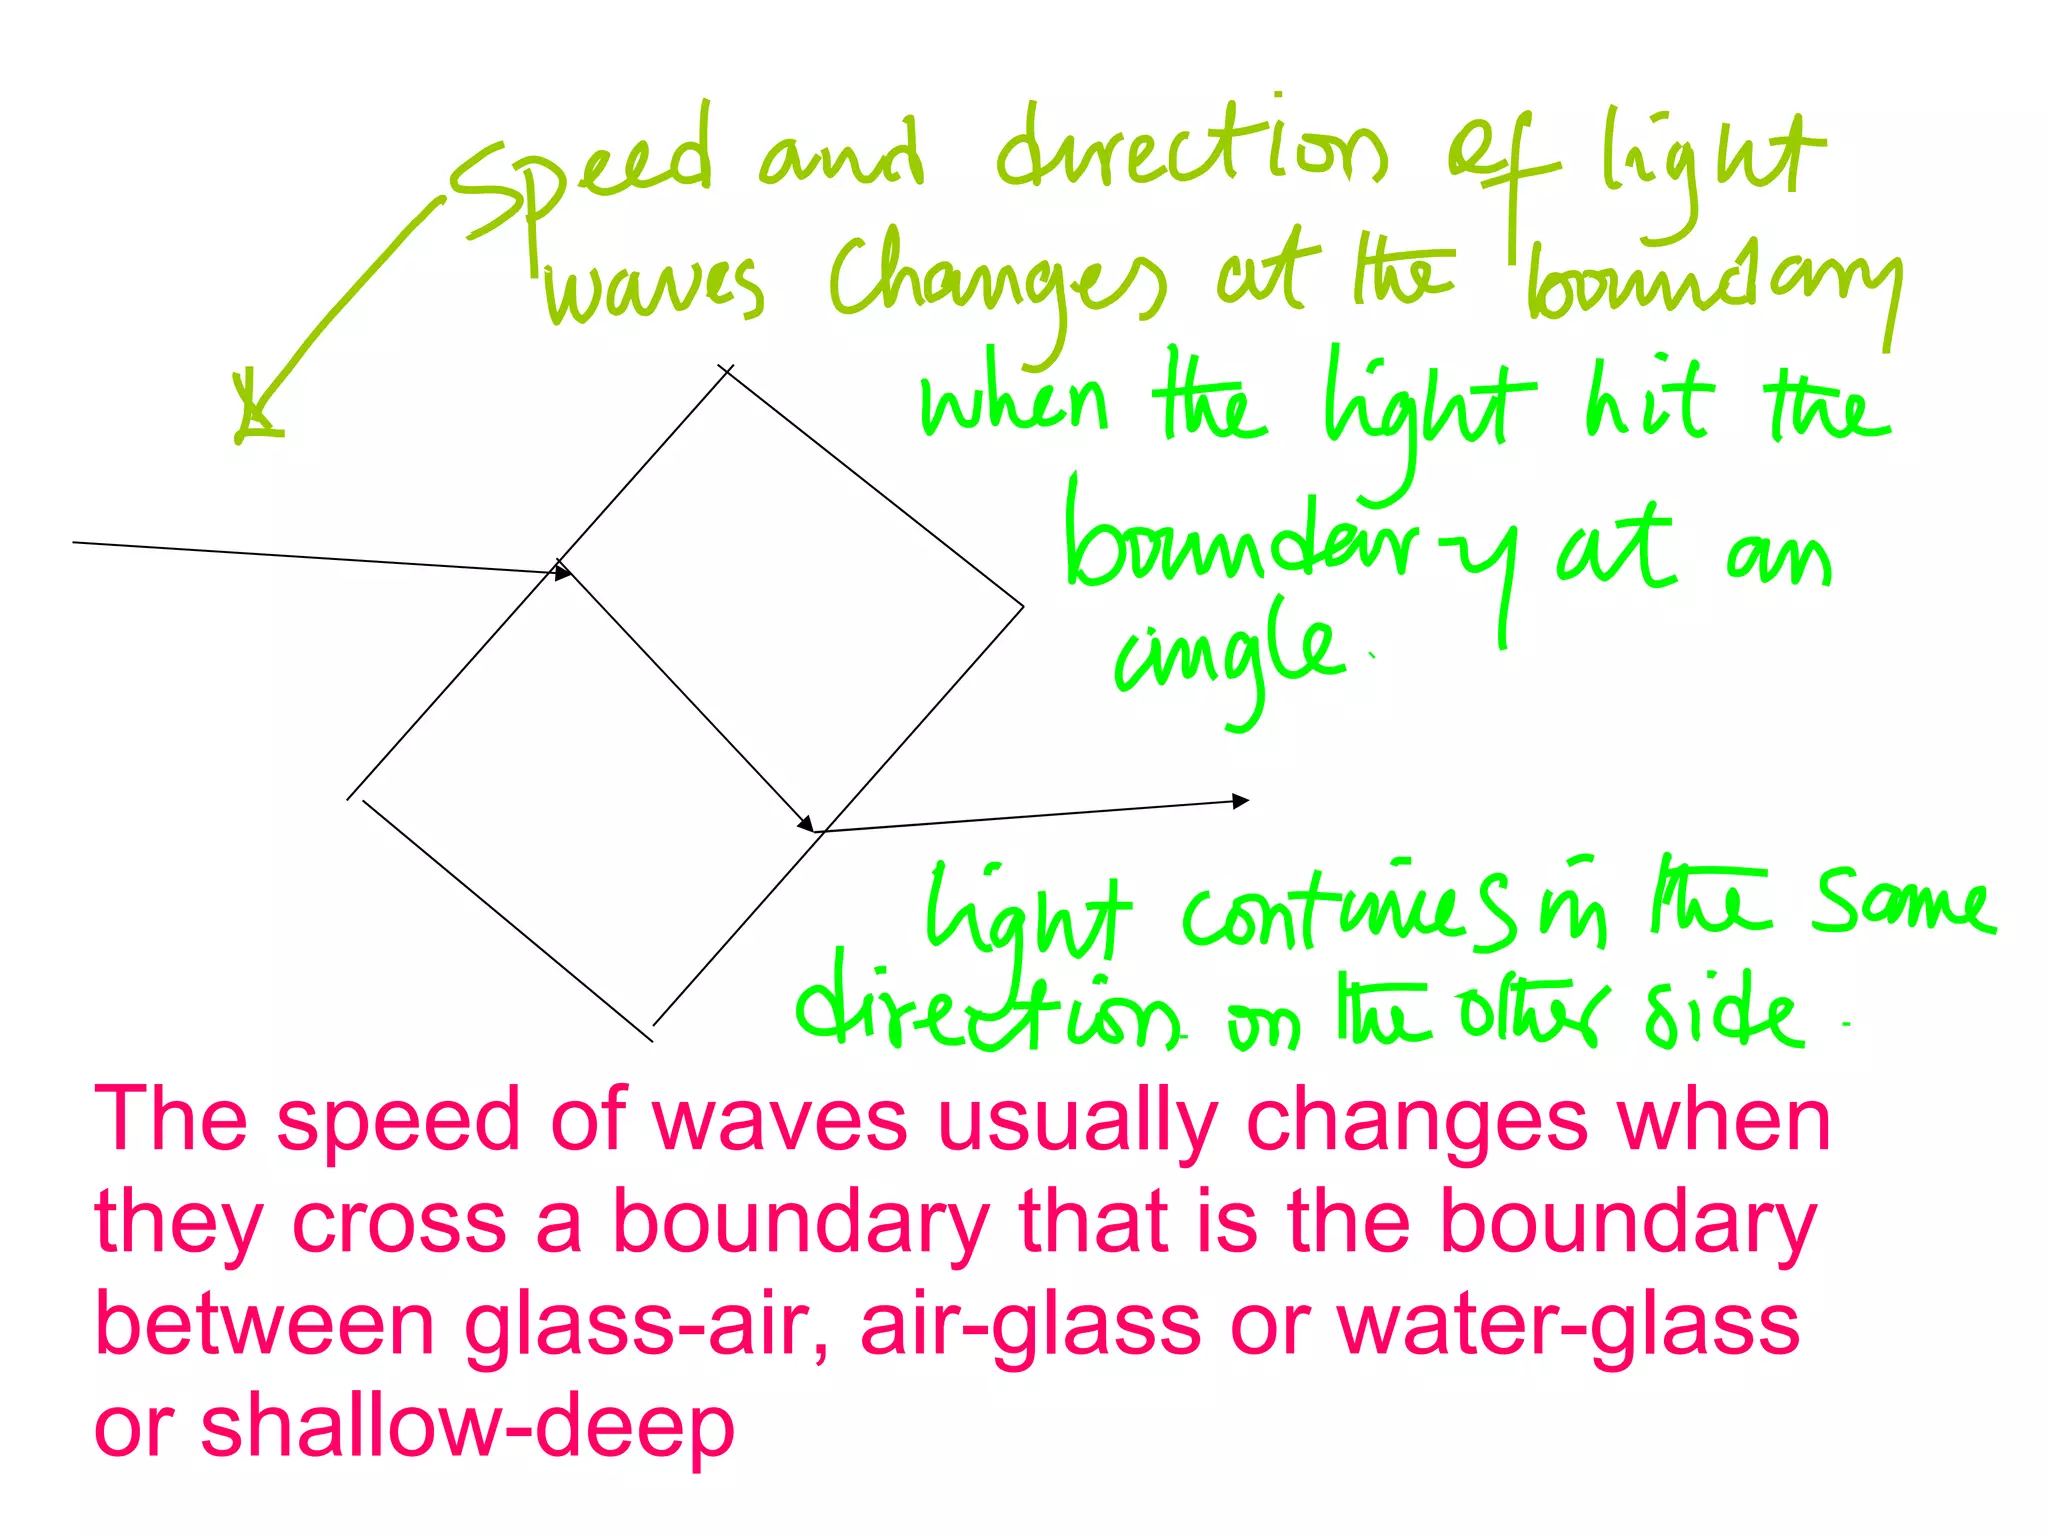 Speed and direction of light
waves changes at the boundary
when the light hit the
boundary at an
angle.
light continues in the same
direction on the other side.
The speed of waves usually changes when
they cross a boundary that is the boundary
between glass-air, air-glass or water-glass
or shallow-deep